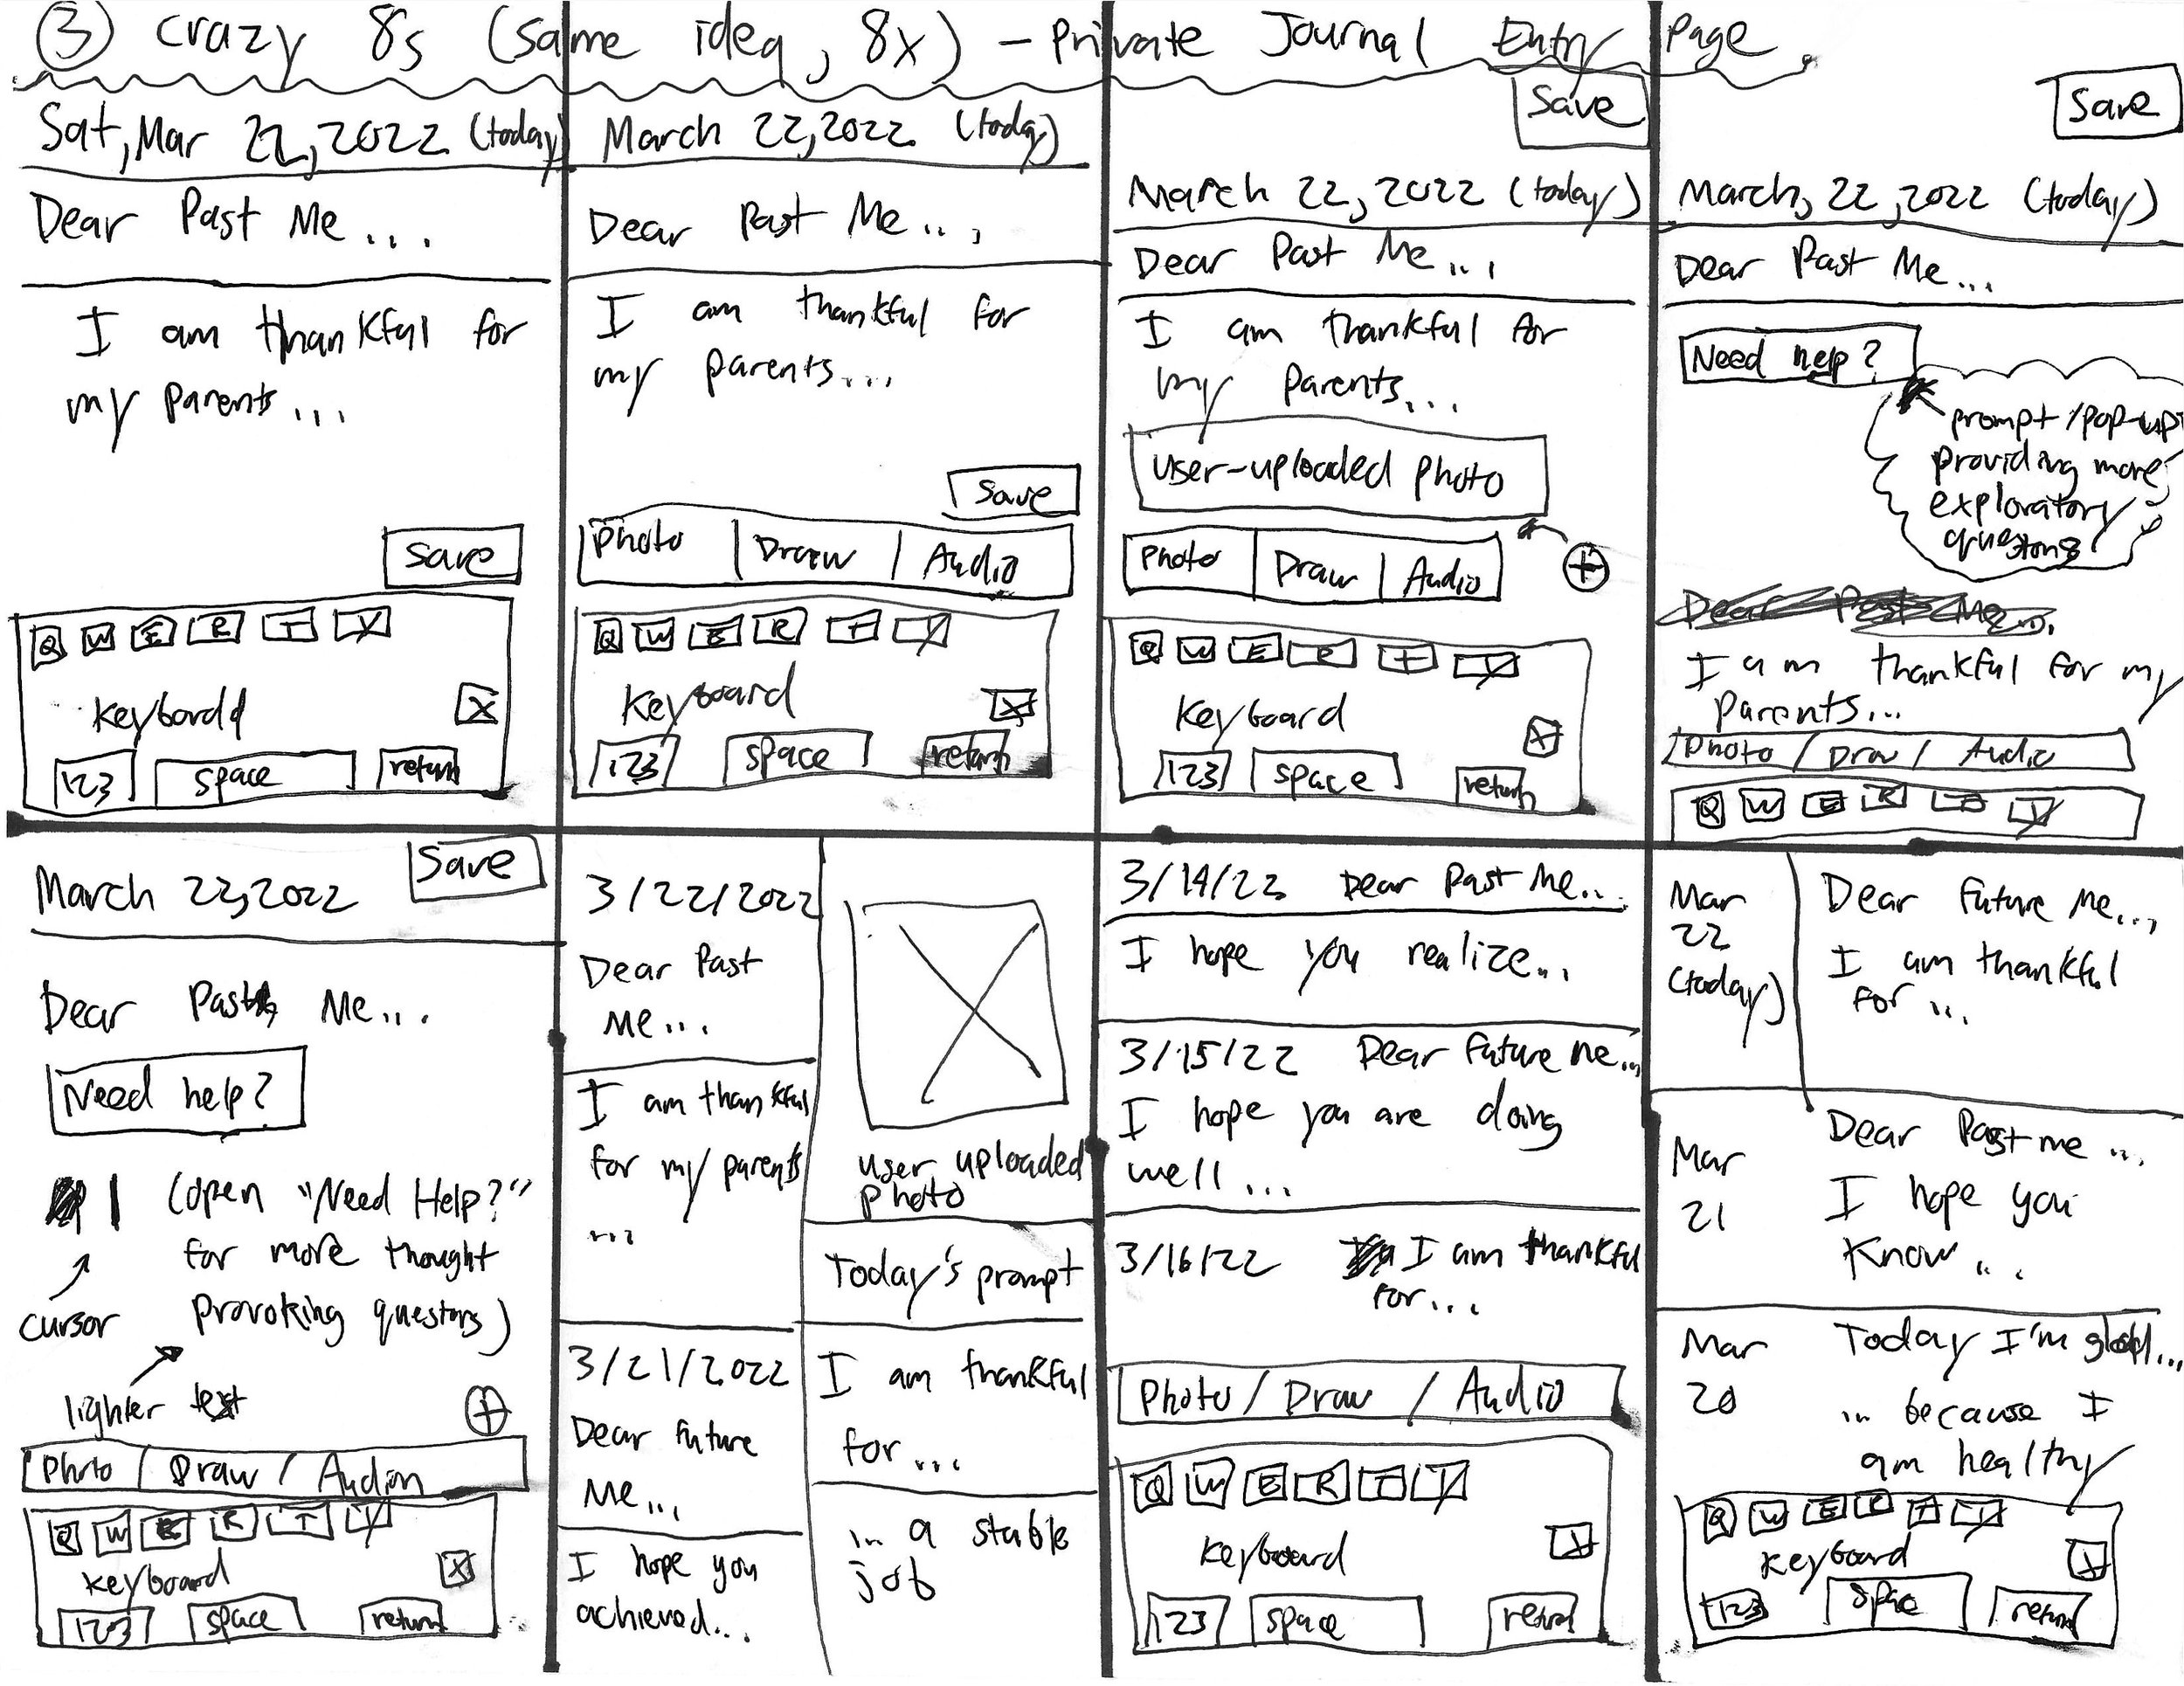 ③ Crazy 8s (same idea, 8x) - Private Journal Entry Page
Sat, Mar 22, 2022 (today)
Dear Past Me...
I am thankful for
my parents...
Save
Q W E R T Y
X
123 space return
March 22, 2022 (today)
Dear Past Me...
I am thankful for
my parents...
Save
Photo | Draw | Audio
Q W E R T Y
Keyboard X
123 space return
Save
March 22, 2022 (today)
Dear Past Me...
I am thankful for
my Parents...
user-uploaded photo
Photo | Draw | Audio +
Q W E R T Y
Keyboard X
123 space return
Save
March, 22, 2022 (today)
Dear Past Me...
Need help?
prompt/pop-up
providing more
exploratory
questions
Dear Past Me...
I am thankful for my
Parents...
Photo / Draw / Audio
Q W E R T Y
Save
March 22, 2022
Dear Past Me...
Need help?
(open "Need Help?"
for more thought
provoking questons)
cursor
lighter text
+
Photo / Draw / Audion
Q W E R T Y
Keyboard X
123 space return
3/22/2022
Dear Past
Me...
I am thankful
for my parents
...
3/21/2022
Dear future
Me...
I hope you
achieved...
user uploaded
photo
Today's prompt
I am thankful
for...
in a stable
job
3/14/22 Dear Past Me...
I hope you realize...
3/15/22 Dear Future me...
I hope you are doing
well...
3/16/22 I am thankful
for...
Photo / Draw / Audio
Q W E R T Y
Keyboard
123 space return
Mar
22
(today)
Dear Future Me...
I am thankful
for...
Mar
21
Dear Past me...
I hope you
Know...
Mar
20
Today I'm glad...
... because I
am healthy
Q W E R T Y
Keyboard
123 space return